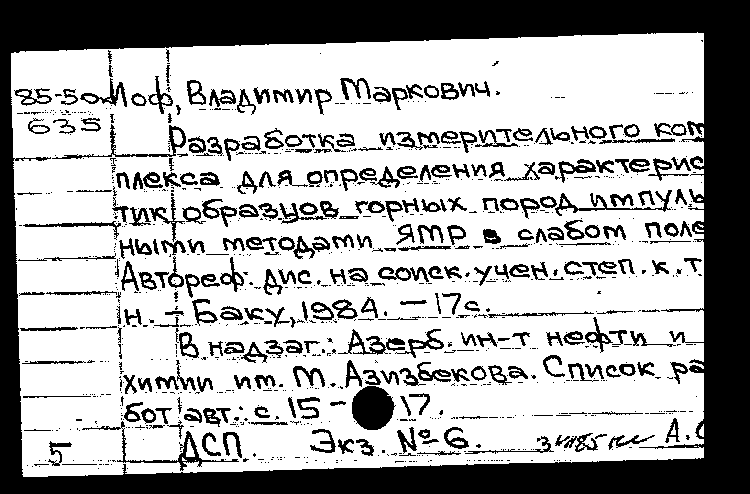 85-5 Иоф, Владимир Маркович.
635
Разработка измерительного ком
плекса для определения характерис
тик образцов горных пород импуль
ными методами ЯМР в слабом поле
Автореф. дис. на соиск. учен. степ. к. т.
н. - Баку, 1984. - 17с.
В надзаг.: Азерб. ин-т нефти и
химии им. М. Азизбекова. Список ра
бот авт.: с. 15 - 17.
5 ДСП. Экз. № 6. А.